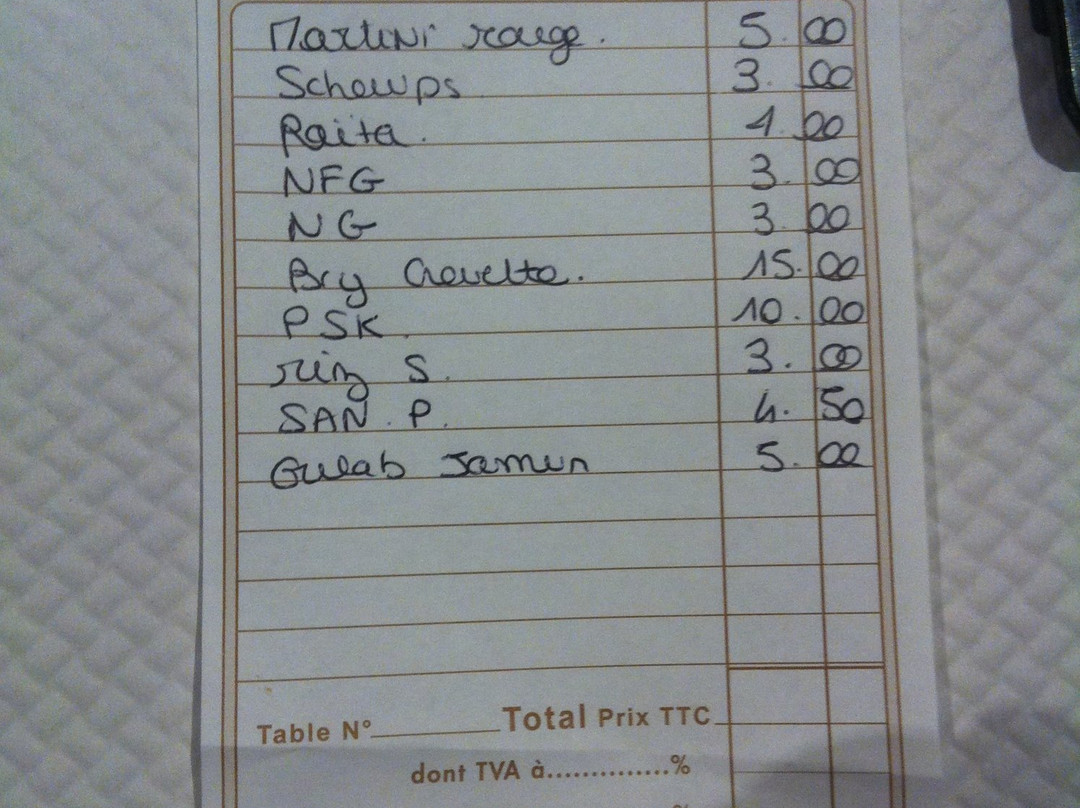 Martini rouge. 5.00
Schewps 3.00
Raita. 4.00
NFG 3.00
NG 3.00
Bry Crevette. 15.00
PSK. 10.00
riz S. 3.00
SAN. P. 4.50
Gulab Jamun 5.00
Table N° Total Prix TTC
dont TVA à..............%